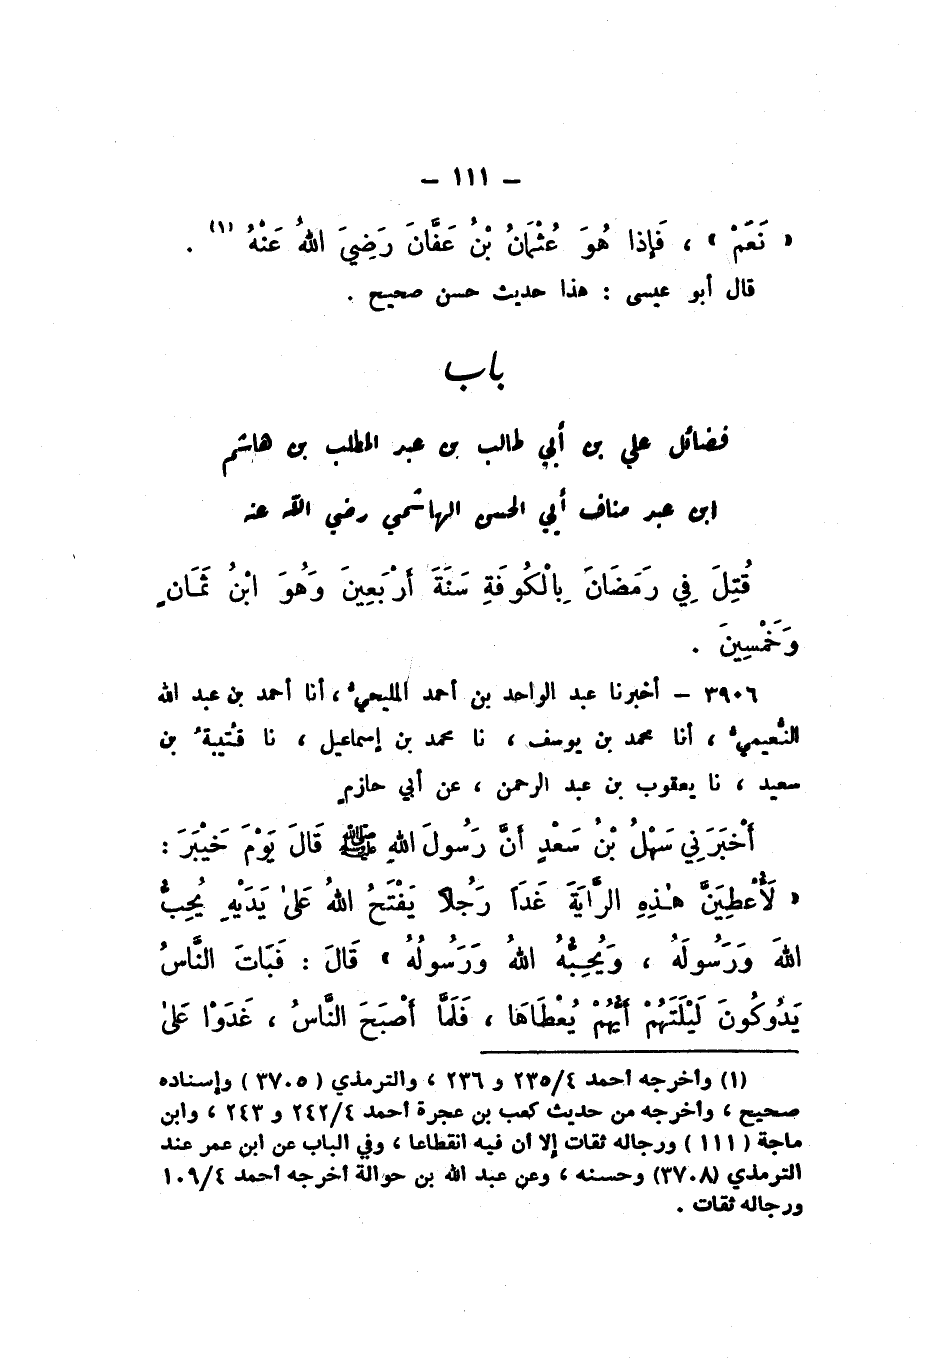 — ١١١ —
« نَعَمْ » ، فَإِذا هُوَ عُثْمَانُ بْنُ عَفَّانَ رَضِيَ اللهُ عَنْهُ (١) .
قال أبو عيسى : هذا حديث حسن صحيح .
باب
فضائل علي بن أبي طالب بن عبد المطلب بن هاشم
ابن عبد مناف أبي الحسن الهاشمي رضي الله عنه
قُتِلَ فِي رَمَضَانَ بِالْكُوفَةِ سَنَةَ أَرْبَعِينَ وَهُوَ ابْنُ ثَمَانٍ
وَخَمْسِينَ .
٣٩٠٦ — أخبرنا عبد الواحد بن أحمد المليحيُّ ، أنا أحمد بن عبد الله
النُّعيميُّ ، أنا محمد بن يوسف ، نا محمد بن إسماعيل ، نا قُتيبةُ بن
سعيد ، نا يعقوب بن عبد الرحمن ، عن أبي حازمٍ
أَخْبَرَنِي سَهْلُ بْنُ سَعْدٍ أَنَّ رَسُولَ اللهِ ﷺ قَالَ يَوْمَ خَيْبَرَ :
« لَأُعْطِيَنَّ هٰذِهِ الرَّايَةَ غَداً رَجُلاً يَفْتَحُ اللهُ عَلىٰ يَدَيْهِ يُحِبُّ
اللهَ وَرَسُولَهُ ، وَيُحِبُّهُ اللهُ وَرَسُولُهُ » قَالَ : فَبَاتَ النَّاسُ
يَدُوكُونَ لَيْلَتَهُمْ أَيُّهُمْ يُعْطَاهَا ، فَلَمَّا أَصْبَحَ النَّاسُ ، غَدَوْا عَلىٰ
(١) وأخرجه أحمد ٢٣٥/٤ و ٢٣٦ ، والترمذي ( ٣٧٠٥ ) وإسناده
صحيح ، وأخرجه من حديث كعب بن عجرة أحمد ٢٤٢/٤ و ٢٤٣ ، وابن
ماجة ( ١١١ ) ورجاله ثقات إلا أن فيه انقطاعا ، وفي الباب عن ابن عمر عند
الترمذي (٣٧٠٨) وحسنه ، وعن عبد الله بن حوالة أخرجه أحمد ١٠٩/٤
ورجاله ثقات .